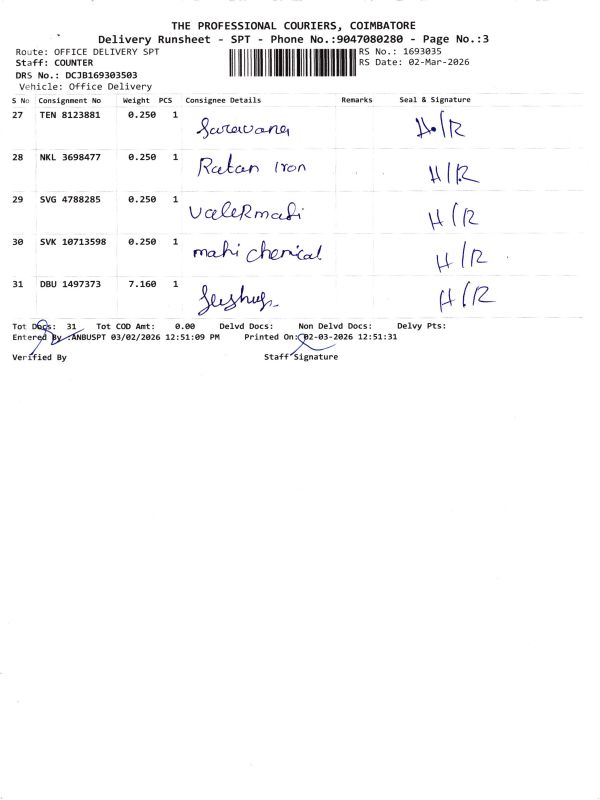 THE PROFESSIONAL COURIERS, COIMBATORE
Delivery Runsheet - SPT - Phone No.:9047080280 - Page No.:3
Route: OFFICE DELIVERY SPT RS No.: 1693035
Staff: COUNTER RS Date: 02-Mar-2026
DRS No.: DCJB169303503
Vehicle: Office Delivery
S No Consignment No Weight PCS Consignee Details Remarks Seal & Signature
27 TEN 8123881 0.250 1 Saravana H/R
28 NKL 3698477 0.250 1 Ratan Iron H/R
29 SVG 4788285 0.250 1 H/R
30 SVK 10713598 0.250 1 mahi chemical H/R
31 DBU 1497373 7.160 1 H/R
Tot Docs: 31 Tot COD Amt: 0.00 Delvd Docs: Non Delvd Docs: Delvy Pts:
Entered By :ANBUSPT 03/02/2026 12:51:09 PM Printed On: 02-03-2026 12:51:31
Verified By Staff Signature